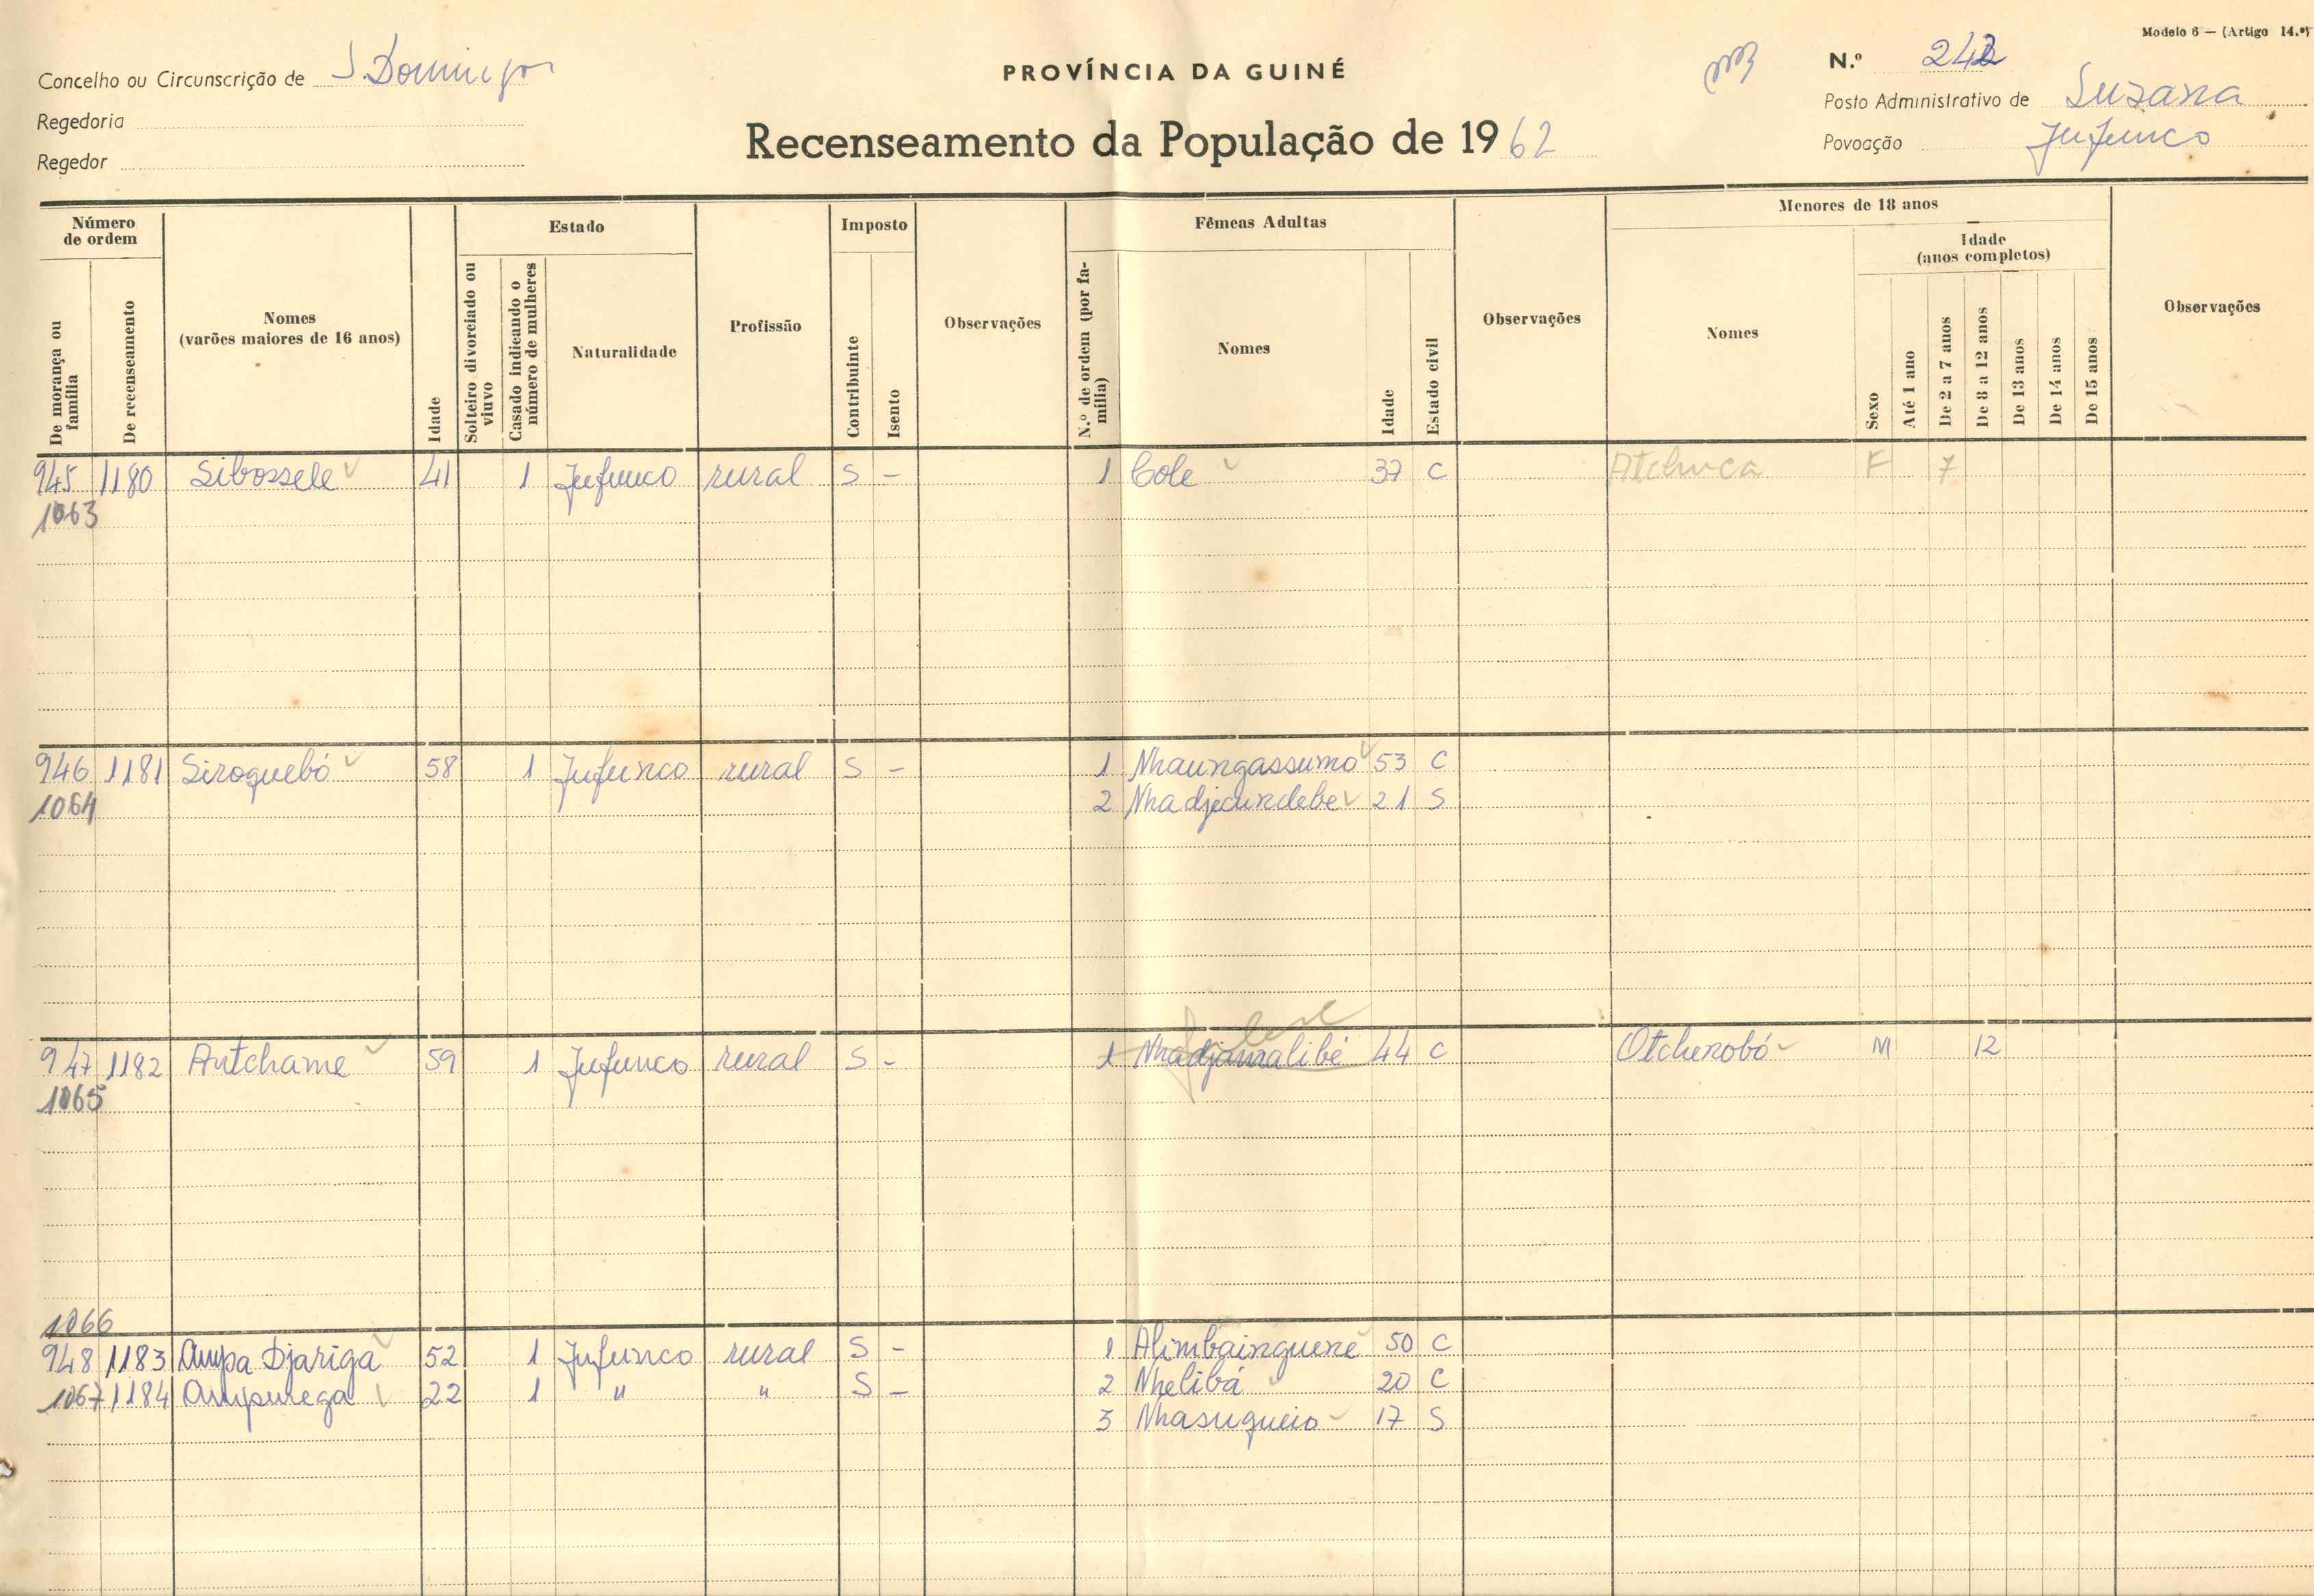 Modelo 6 — (Artigo 14.º)
Concelho ou Circunscrição de S. Domingos
PROVÍNCIA DA GUINÉ
N.º 242
Regedoria
Posto Administrativo de Suzana
Regedor
Recenseamento da População de 1962
Povoação Jufunco
Número de ordem
De morança ou família
De recenseamento
Nomes
(varões maiores de 16 anos)
Idade
Estado
Solteiro divorciado ou viuvo
Casado indicando o número de mulheres
Naturalidade
Profissão
Imposto
Contribuinte
Isento
Observações
Fêmeas Adultas
N.º de ordem (por família)
Nomes
Idade
Estado civil
Observações
Menores de 18 anos
Nomes
Sexo
Idade
(anos completos)
Até 1 ano
De 2 a 7 anos
De 8 a 12 anos
De 13 anos
De 14 anos
De 15 anos
Observações
945 1180 Sibossele 41 1 Jufunco rural S - 1 Cole 37 C Atchuca F 7
1063
946 1181 Siroquebó 58 1 Jufunco rural S - 1 Nhaungassumo 53 C
1064 2 Nhadjecundebe 21 S
947 1182 Antchame 59 1 Jufunco rural S - 1 Nhadjamalibé 44 C Otchenobó M 12
1065
1066
948 1183 Ampa Djariga 52 1 Jufunco rural S - 1 Alimbainguene 50 C
1067 1184 Ampurega 22 1 " " S - 2 Nhelibá 20 C
3 Nhasugueio 17 S